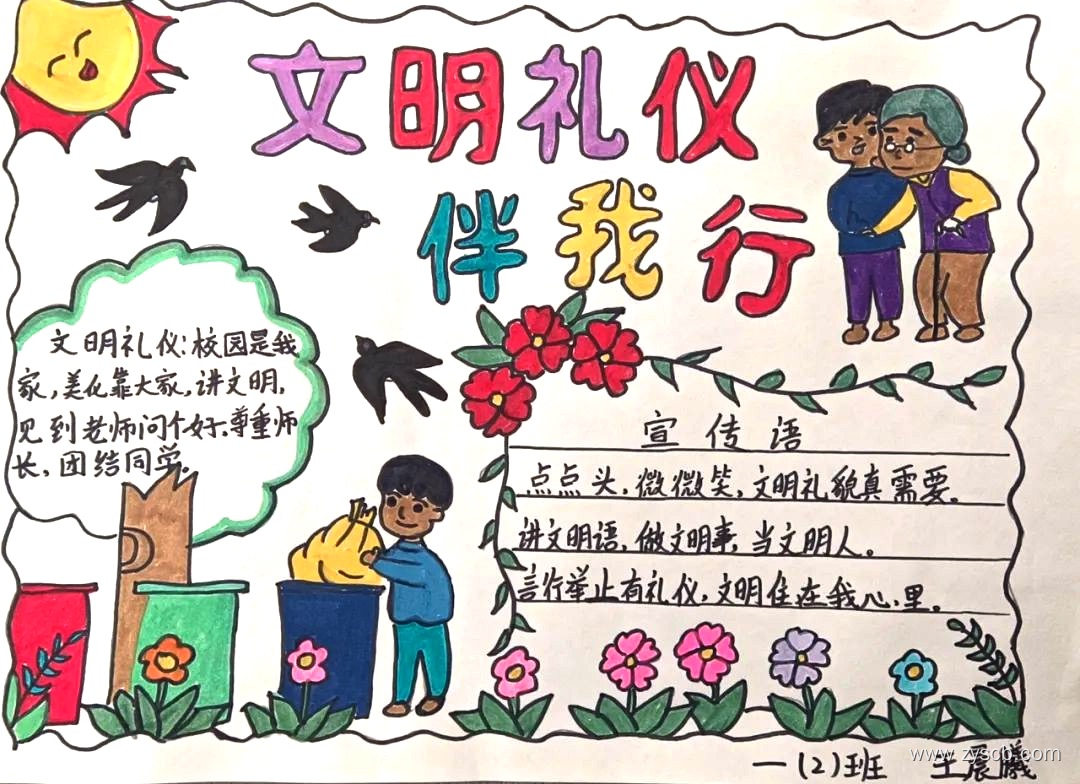 文明礼仪
伴我行
文明礼仪:校园是我
家,美化靠大家,讲文明,
见到老师问个好、尊重师
长,团结同学。
宣传语
点点头,微微笑,文明礼貌真需要。
讲文明语,做文明事,当文明人。
言行举止有礼仪,文明住在我心里。
一(2)班 王晨曦
www.zyscb.com